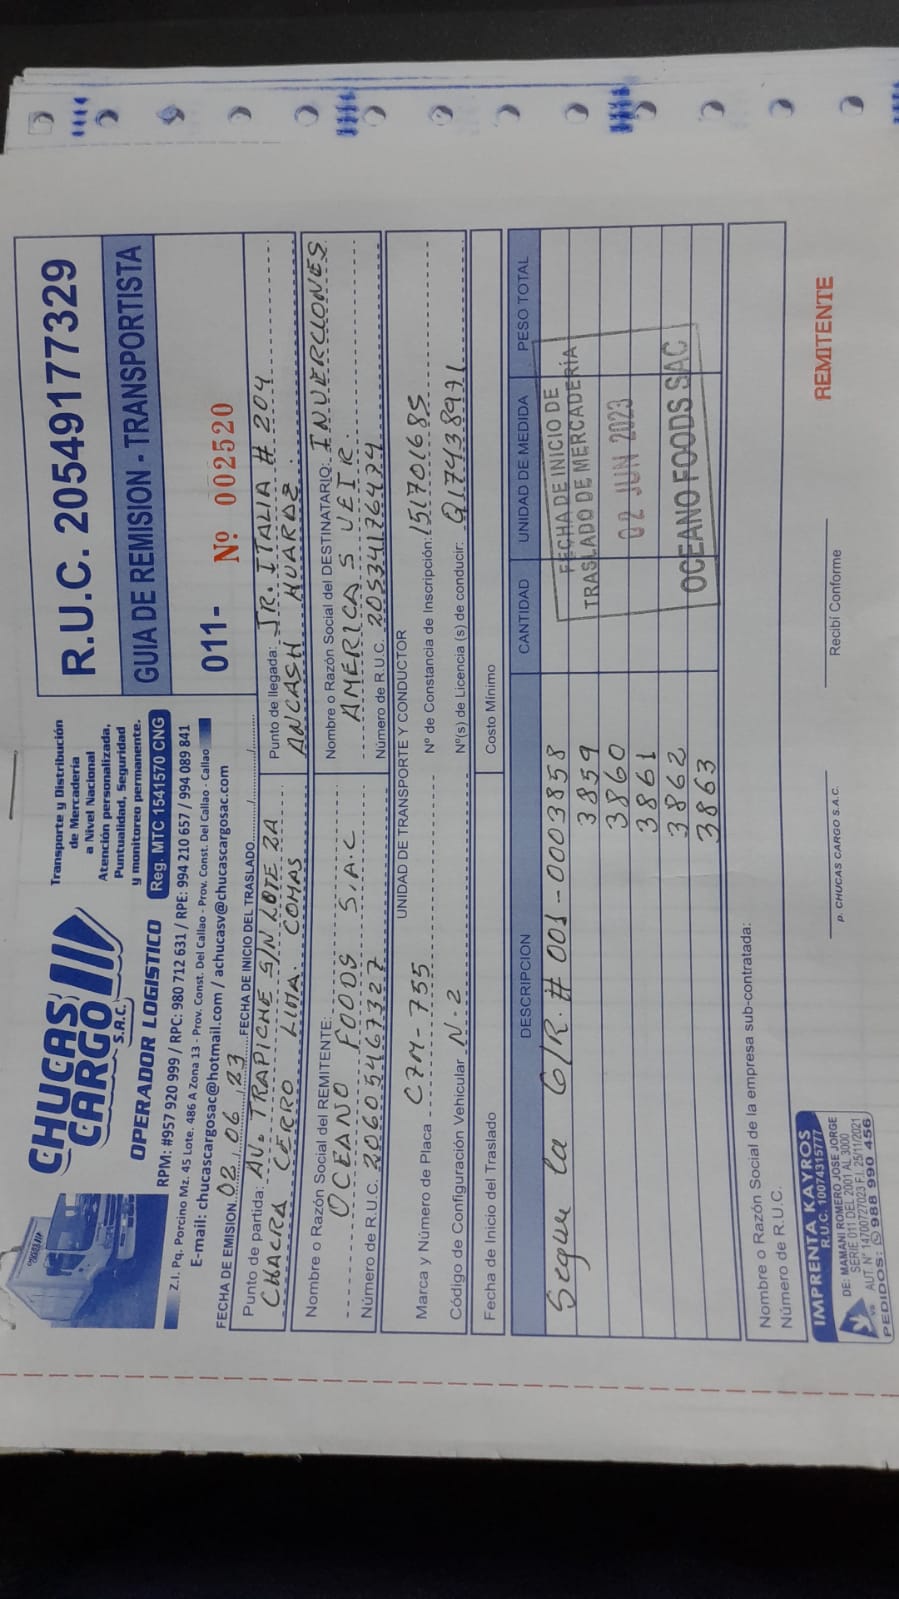 CHUCAS
CARGO
S.A.C.
OPERADOR LOGISTICO
Transporte y Distribución
de Mercadería
a Nivel Nacional
Atención personalizada,
Puntualidad, Seguridad
y monitoreo permanente.
Reg. MTC 1541570 CNG
RPM: #957 920 999 / RPC: 980 712 631 / RPE: 994 210 657 / 994 089 841
Z.I. Pq. Porcino Mz. 45 Lote. 486 A Zona 13 - Prov. Const. Del Callao - Prov. Const. Del Callao - Callao
E-mail: chucascargosac@hotmail.com / achucasv@chucascargosac.com
R.U.C. 20549177329
GUIA DE REMISION - TRANSPORTISTA
011- Nº 002520
FECHA DE EMISION 02 / 06 / 23 FECHA DE INICIO DEL TRASLADO / /
Punto de partida: AV. TRAPICHE S/N LOTE 2A
CHACRA CERRO LIMA. COMAS
Punto de llegada: JR. ITALIA # 204
ANCASH HUARAZ.
Nombre o Razón Social del REMITENTE:
OCEANO FOODS S.A.C
Número de R.U.C. 20605467327
Nombre o Razón Social del DESTINATARIO: INVERCIONES
AMERICA S VEIR.
Número de R.U.C. 20534176474
UNIDAD DE TRANSPORTE Y CONDUCTOR
Marca y Número de Placa C7M-755
Nº de Constancia de Inscripción: 151701685
Código de Configuración Vehicular N-2
Nº(s) de Licencia (s) de conducir: Q17438971
Fecha de Inicio del Traslado
Costo Mínimo
DESCRIPCION CANTIDAD UNIDAD DE MEDIDA PESO TOTAL
Segun la G/R. # 001-0003858
3859
3860
3861
3862
3863
FECHA DE INICIO DE
TRASLADO DE MERCADERÍA
02 JUN 2023
OCEANO FOODS SAC
Nombre o Razón Social de la empresa sub-contratada:
Número de R.U.C.
IMPRENTA KAYROS
R.U.C. 10074315777
DE: MAMANI ROMERO JOSE JORGE
SERIE 011 DEL 2001 AL 3000
AUT. Nº 14700727023 F.I. 25/11/2021
PEDIDOS: 988 990 456
p. CHUCAS CARGO S.A.C.
Recibí Conforme
REMITENTE